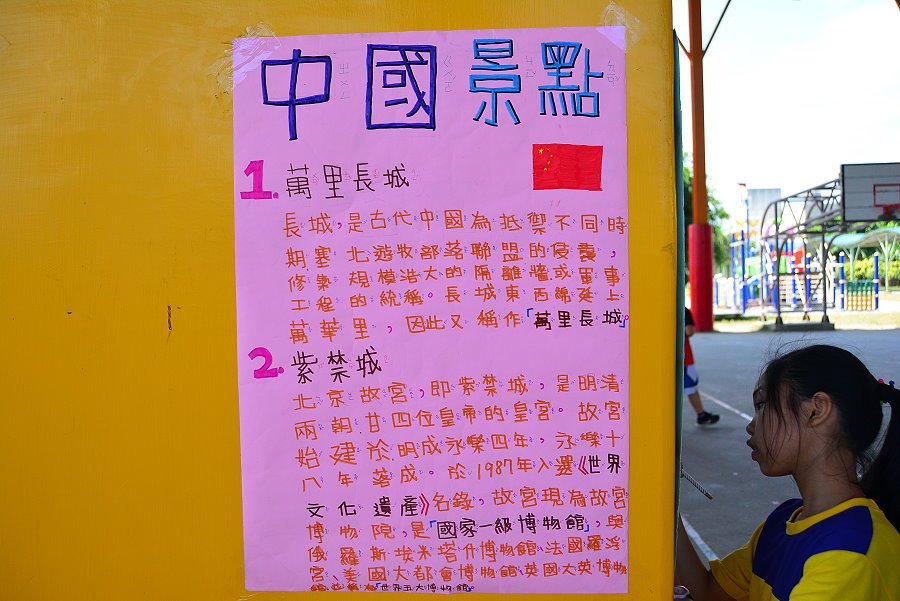 中國景點
1. 萬里長城
長城，是古代中國為抵禦不同時
期塞北遊牧部落聯盟的侵襲，
修築規模浩大的隔離牆或軍事
工程的統稱。長城東西綿延上
萬華里，因此又稱作「萬里長城」。
2. 紫禁城
北京故宮，即紫禁城，是明清
兩朝廿四位皇帝的皇宮。故宮
始建於明成永樂四年，永樂十
八年落成。於1987年入選《世界
文化遺產》名錄，故宮現為故宮
博物院，是「國家一級博物館」，與
俄羅斯埃米塔什博物館、法國羅浮
宮、美國大都會博物館、英國大英博物
「世界五大博物館」。